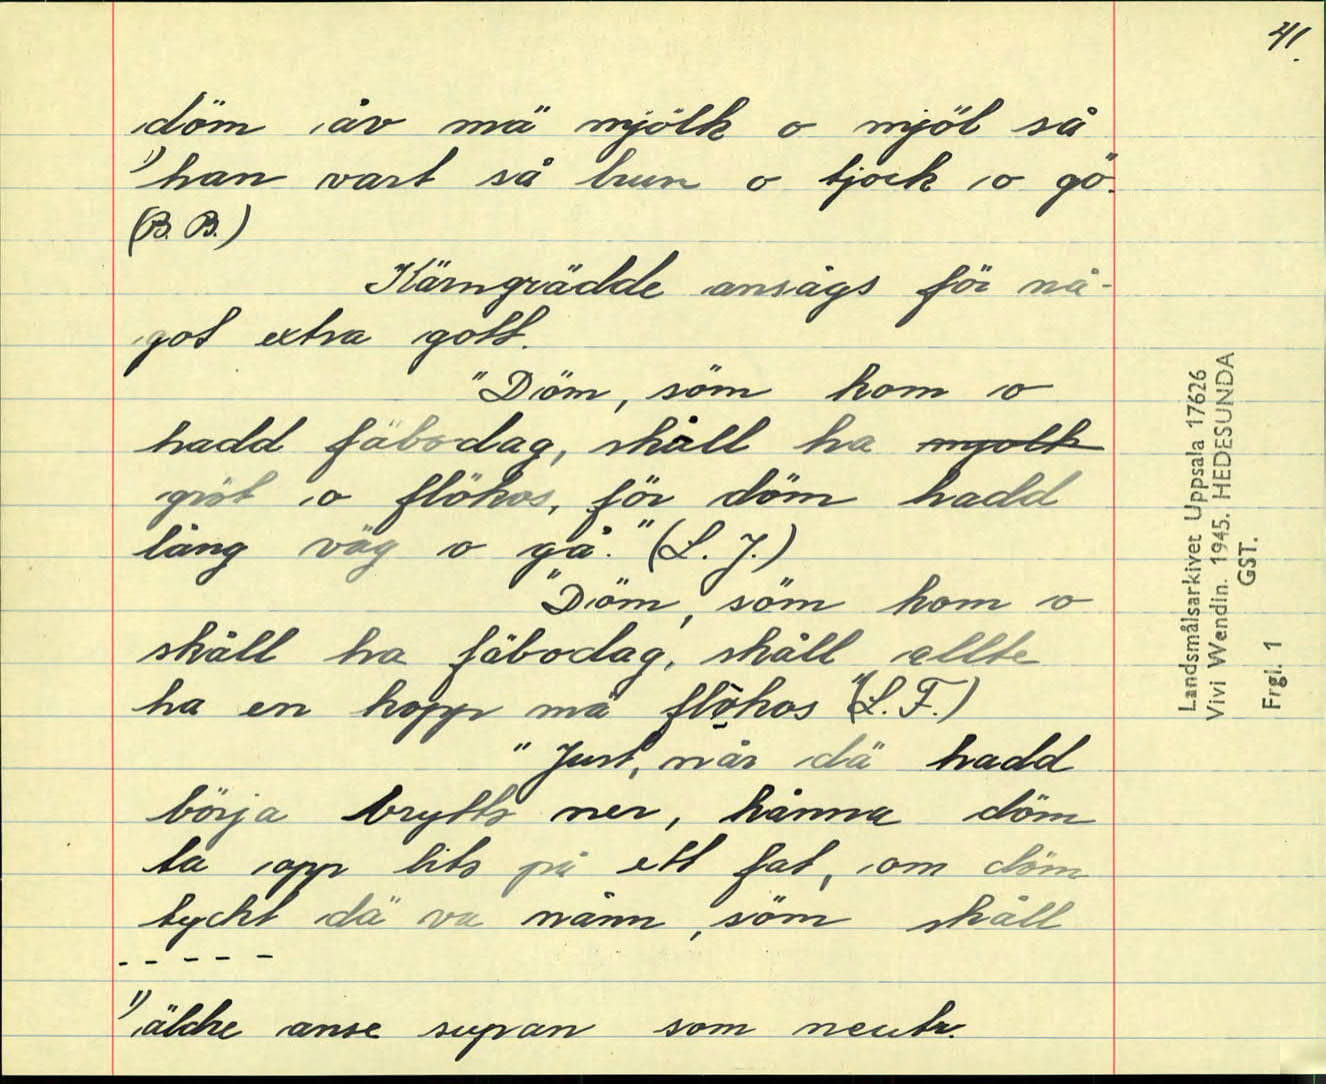 41.
döm åv mä mjölk o mjöl så
1) han vart så brun o tjock o gö".
(B. B.)
Kärngrädde ansågs för nå-
got extra gott.
"Döm, söm kom o
hadd fäbodag, skåll ha mjölk
gröt o flökos, för döm hadd
lång väg o gå." (L. J.)
"Döm, söm kom o
skåll ha fäbodag, skåll allte
ha en kopp mä flökos" (L. F.)
"Just, når dä hadd
börja brytts ner, kånna döm
ta opp lits på ett fat, om döm
tyckt dä va nånn, söm skåll
- - - - -
1) äldre anse supan som neutr.
Landsmålsarkivet Uppsala 17626
Vivi Wendin. 1945. HEDESUNDA
GST.
Frgl. 1